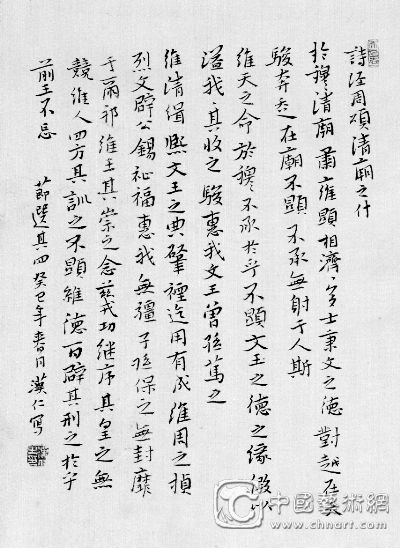 詩經周頌清廟之什
於穆清廟肅雝顯相濟濟多士秉文之德對越在天
駿奔走在廟不顯不承無射于人斯
維天之命於穆不承於乎不顯文王之德之緣假以
溢我其收之駿惠我文王曾孫篤之
維清緝熙文王之典肇禋迄用有成維周之禎
烈文辟公錫祉福惠我無疆子孫保之無封靡
于爾邦維王其崇之念茲戎功继序其皇之無
競維人四方其訓之不顯維德百辟其刑之於乎
前王不忘 節選其四癸巳年春月漢仁寫
中國藝術網
www.chnart.com